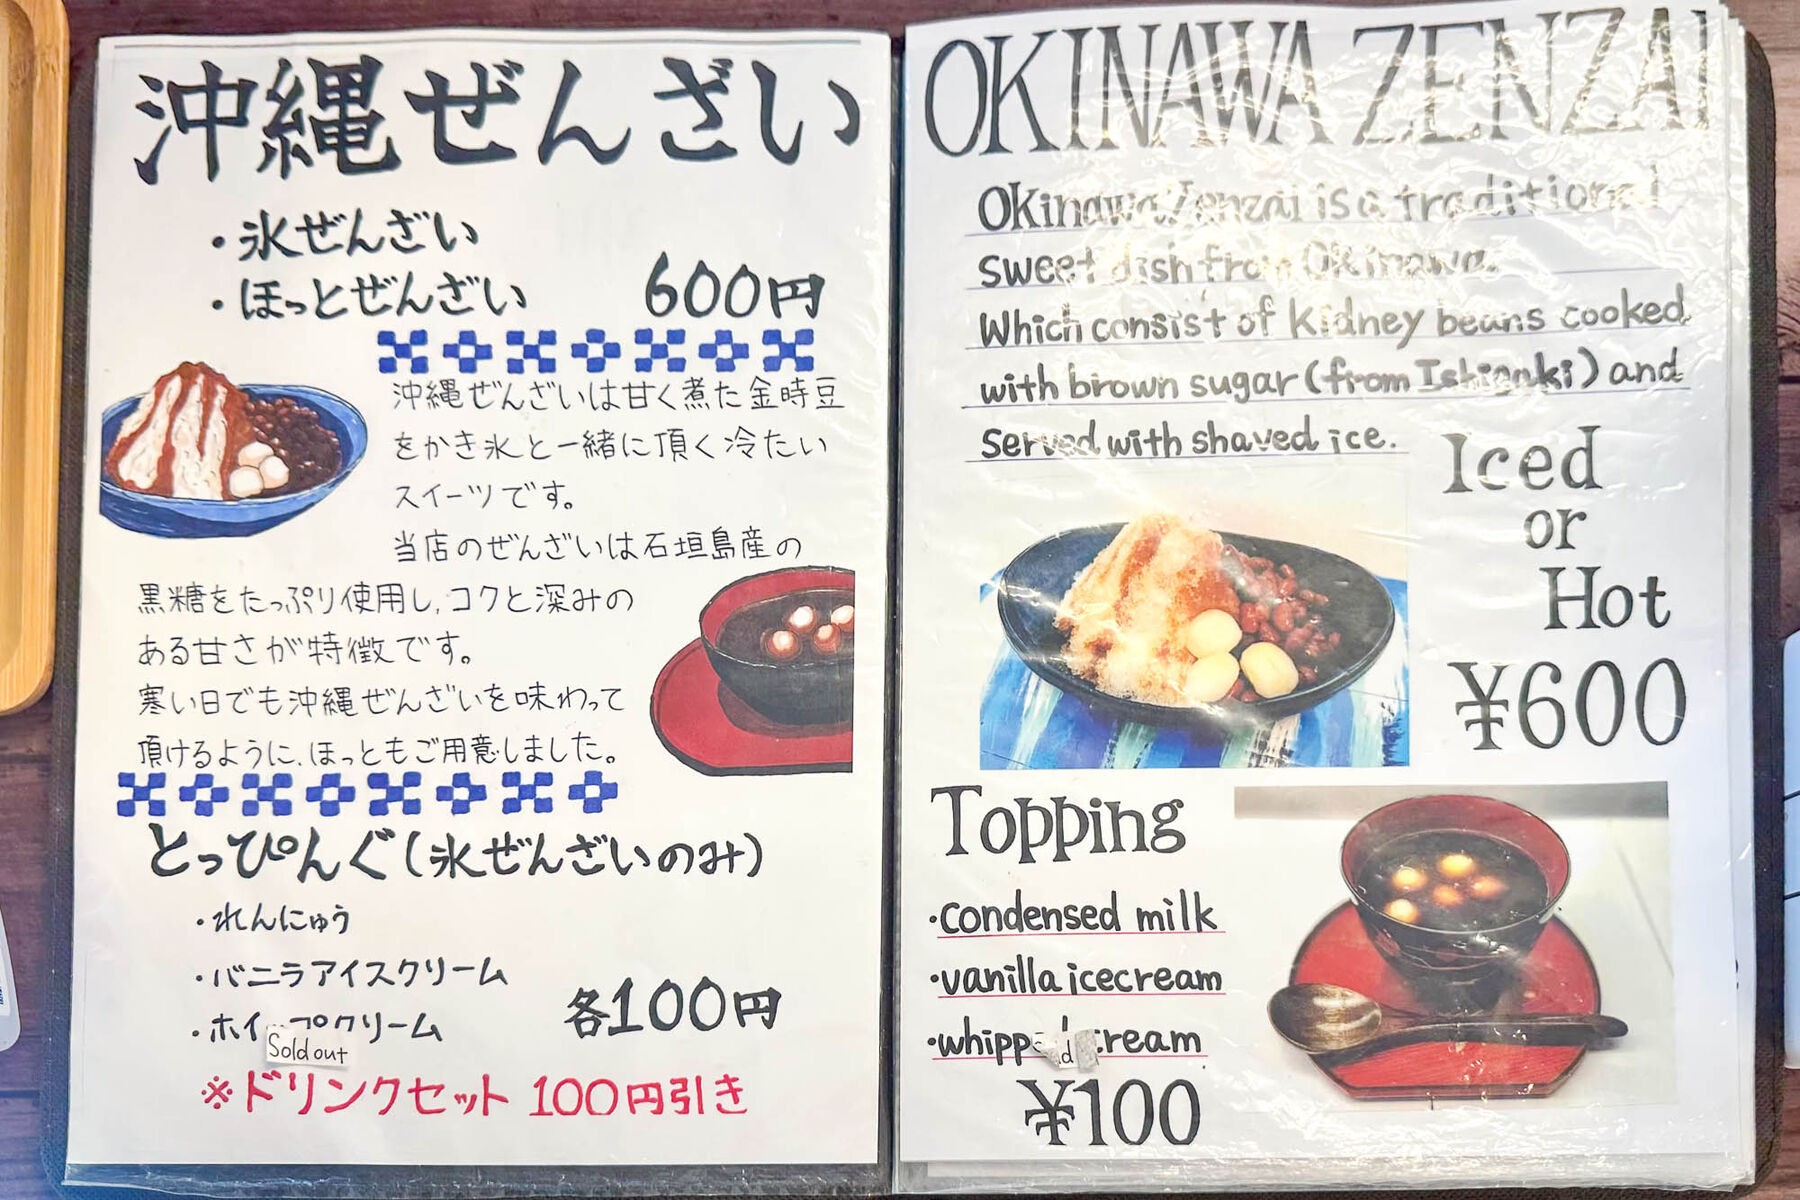 沖縄ぜんざい
・氷ぜんざい
・ほっとぜんざい 600円
沖縄ぜんざいは甘く煮た金時豆
をかき氷と一緒に頂く冷たい
スイーツです。
当店のぜんざいは石垣島産の
黒糖をたっぷり使用し、コクと深みの
ある甘さが特徴です。
寒い日でも沖縄ぜんざいを味わって
頂けるように、ほっともご用意しました。
とっぴんぐ(氷ぜんざいのみ)
・れんにゅう
・バニラアイスクリーム
各100円
・ホイップクリーム
Sold out
※ドリンクセット 100円引き
OKINAWA ZENZAI
Okinawa Zenzai is a traditional
sweet dish from Okinawa.
Which consist of kidney beans cooked
with brown sugar (from Ishigaki) and
Served with shaved ice.
Iced
or
Hot
¥600
Topping
・condensed milk
・vanilla icecream
・whipped cream
¥100